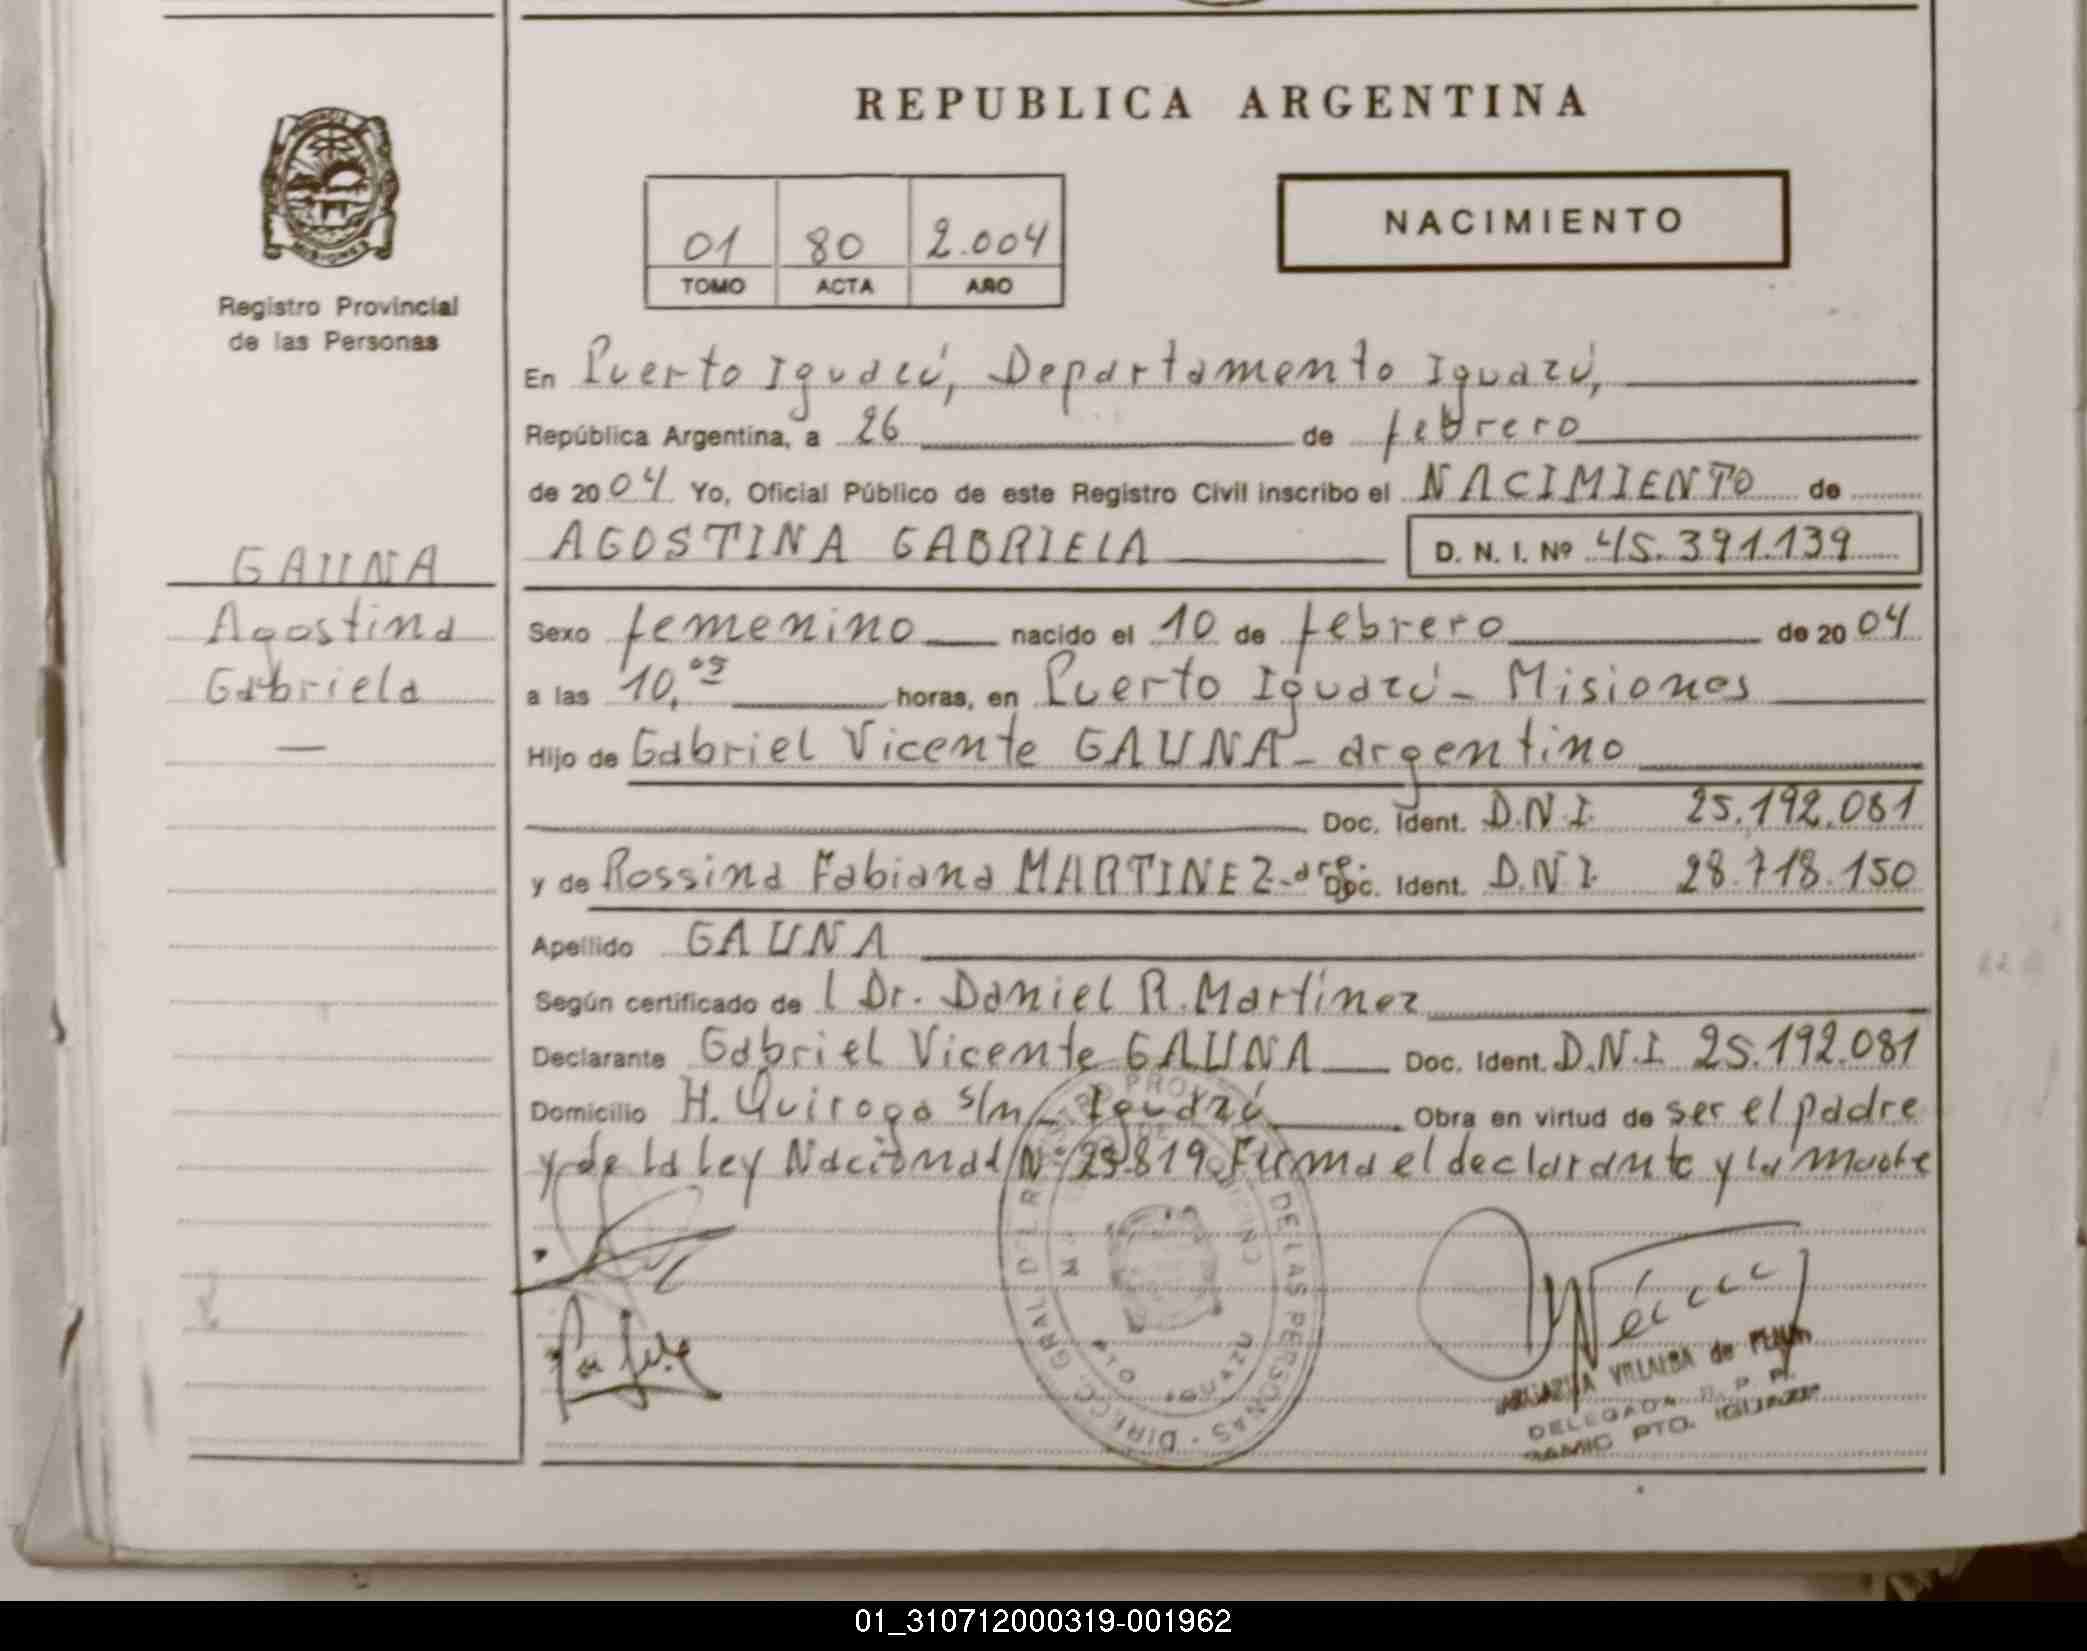 REPUBLICA ARGENTINA
NACIMIENTO
01 80 2.004
TOMO ACTA AÑO
Registro Provincial
de las Personas
GAUNA
Agostina
Gabriela
En Puerto Iguazú, Departamento Iguazú,
República Argentina, a 26 de febrero
de 2004 Yo, Oficial Público de este Registro Civil inscribo el NACIMIENTO de
AGOSTINA GABRIELA D. N. I. Nº 45.391.139
Sexo femenino nacido el 10 de febrero de 2004
a las 10, horas, en Puerto Iguazú - Misiones
Hijo de Gabriel Vicente GAUNA - argentino
Doc. Ident. D.N.I. 25.192.081
y de Rossina Fabiana MARTINEZ - arg. Doc. Ident. D.N.I. 28.718.150
Apellido GAUNA
Según certificado de l Dr. Daniel R. Martínez
Declarante Gabriel Vicente GAUNA Doc. Ident. D.N.I. 25.192.081
Domicilio H. Quiroga s/n - Iguazú Obra en virtud de ser el padre
y de la Ley Nacional Nº 23.819. Firma el declarante y la madre
DIRECC. GRAL. DEL REGISTRO PROV. DE LAS PERSONAS
VILLALBA de
DELEGADA R. P. P.
PTO. IGUAZU
01_310712000319-001962